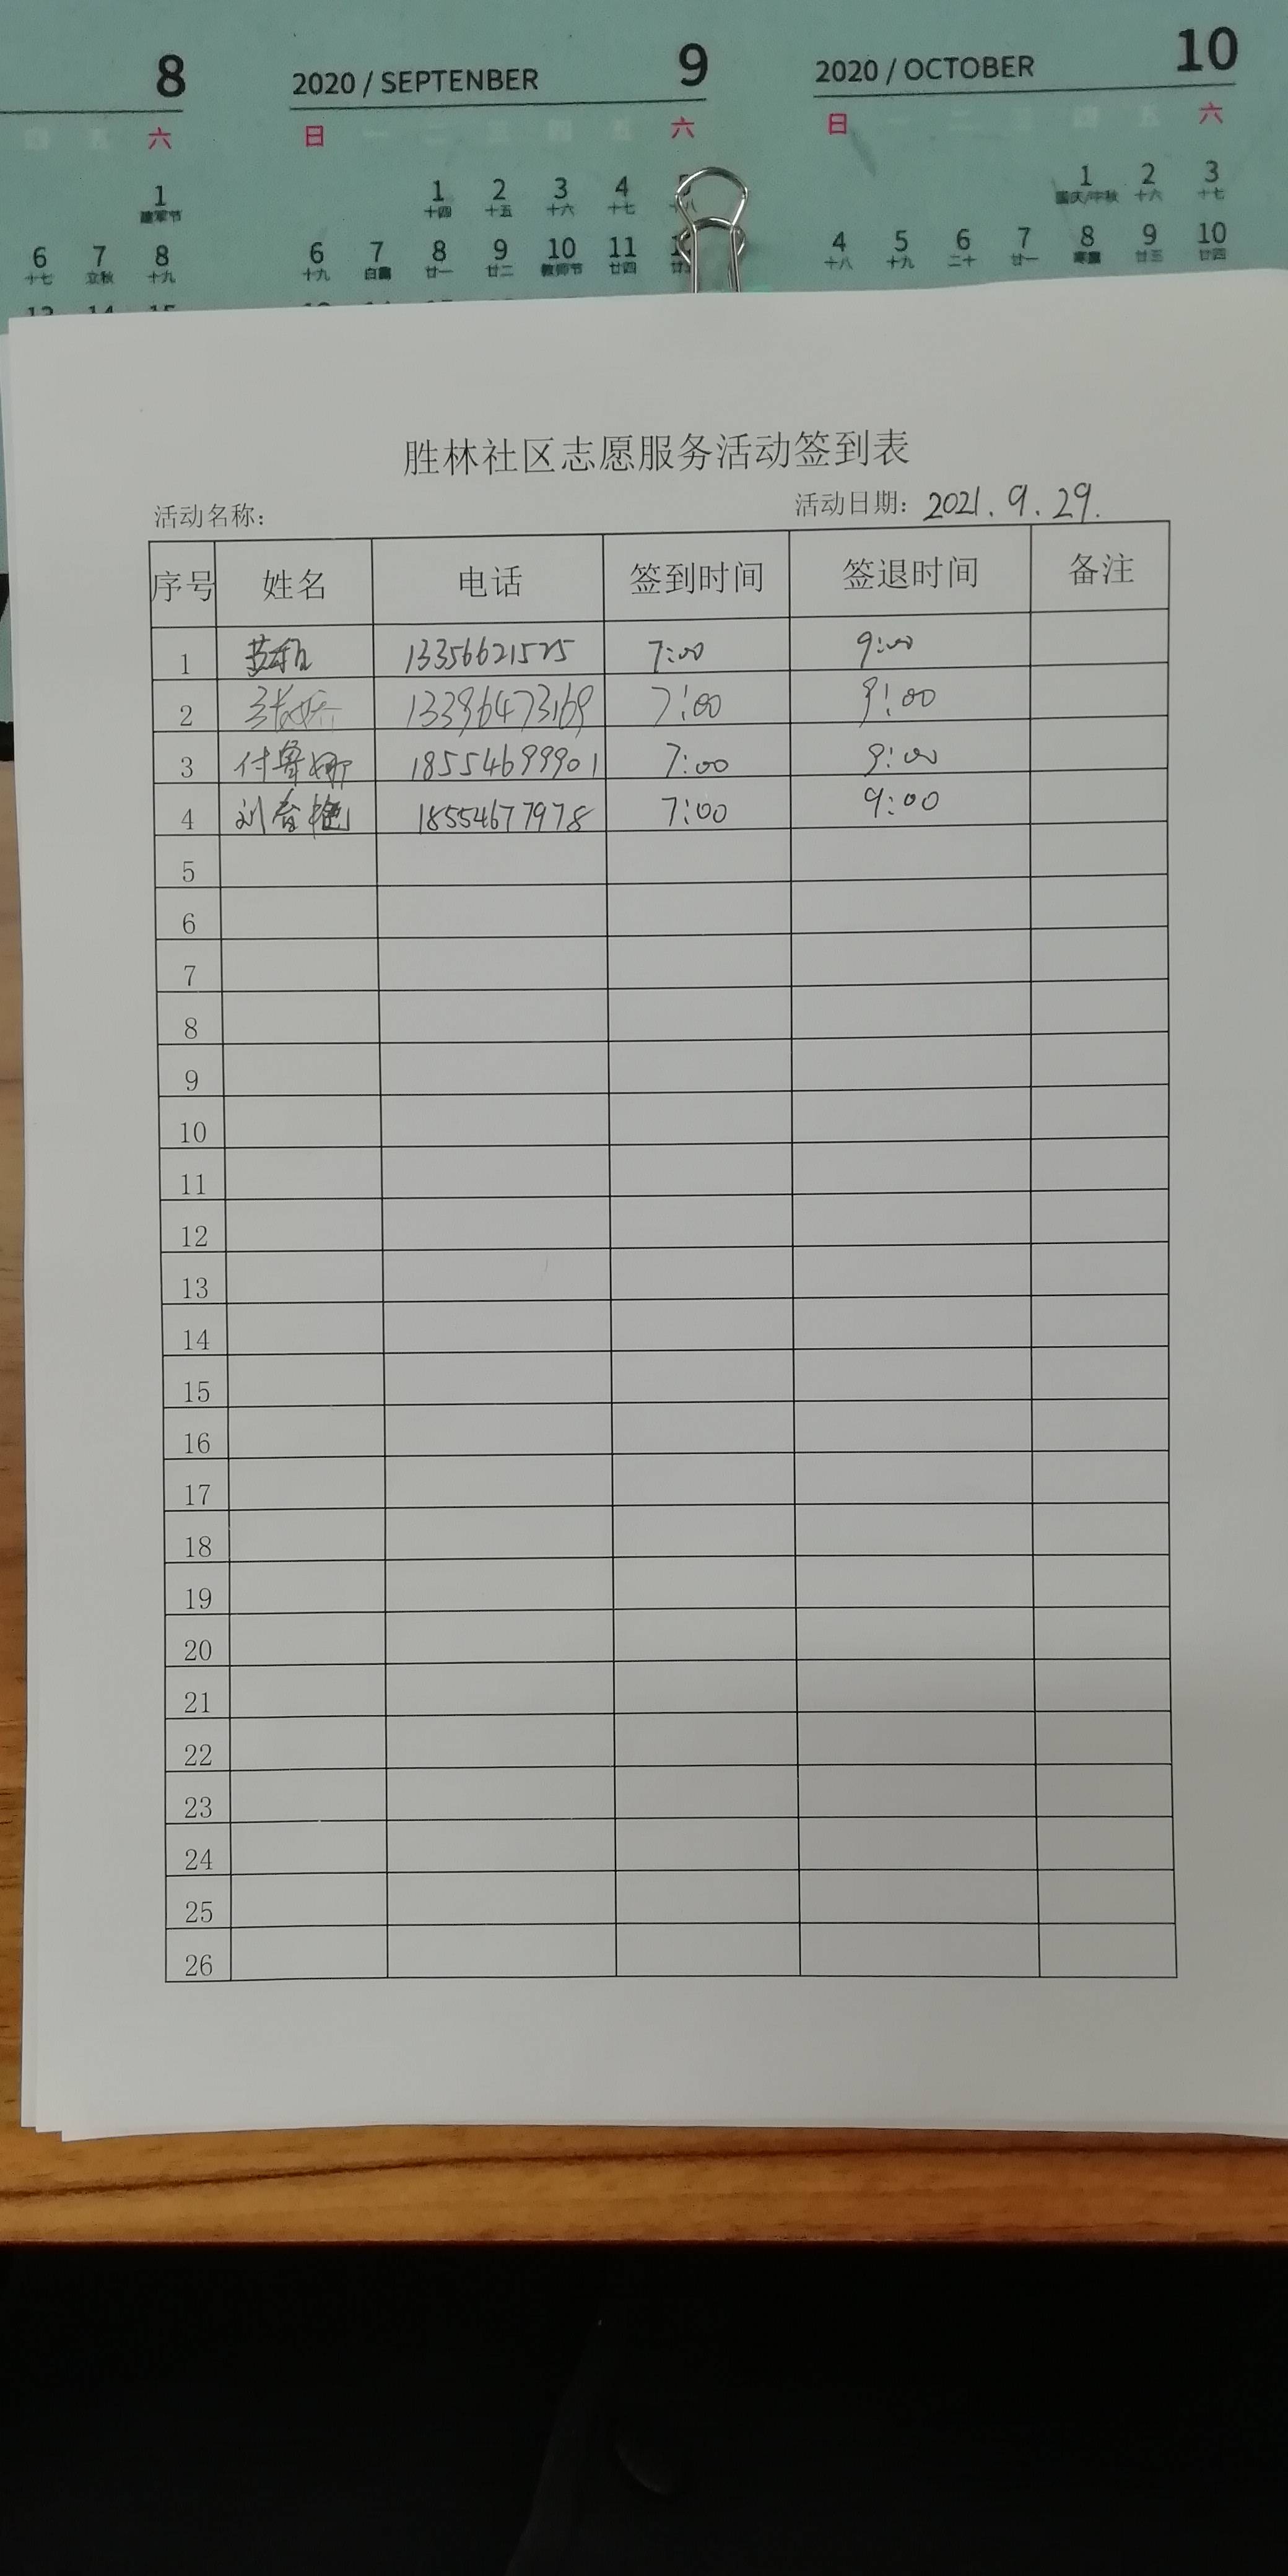 8
2020 / SEPTENBER 9
2020 / OCTOBER 10
四 五 六
日 一 二 三 四 五 六
日 一 二 三 四 五 六
1
建军节
1 2 3 4 5
十四 十五 十六 十七 十八
1 2 3
国庆/中秋 十六 十七
6 7 8
十七 立秋 十九
6 7 8 9 10 11
十九 白露 廿一 廿二 教师节 廿四
4 5 6 7 8 9 10
十八 十九 二十 廿一 寒露 廿三 廿四
13 14 15
胜林社区志愿服务活动签到表
活动名称： 活动日期：2021.9.29.
序号 姓名 电话 签到时间 签退时间 备注
1 13356621525 7:00 9:00
2 张娇 13396473169 7:00 9:00
3 付鲁娜 18554699901 7:00 9:00
4 刘春艳 18554677978 7:00 9:00
5
6
7
8
9
10
11
12
13
14
15
16
17
18
19
20
21
22
23
24
25
26